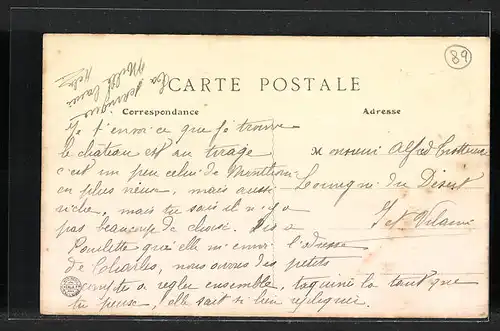 89
CARTE POSTALE
Correspondance
Adresse
Je t'envoi ce que je trouve
le château est au tirage
c'est un peu celui de
en plus vieux, mais aussi
riche, mais tu sais il n'y a
pas beaucoup de choix. Dis a
Poulette qu'elle m'envoi l'adresse
de Charles, nous avons des petits
comptes a regler ensemble, taquine la tant que
tu peux, elle sait si bien repliquer.
Monsieur Alfred
Louvigné du Désert
Ile et Vilaine
Mille